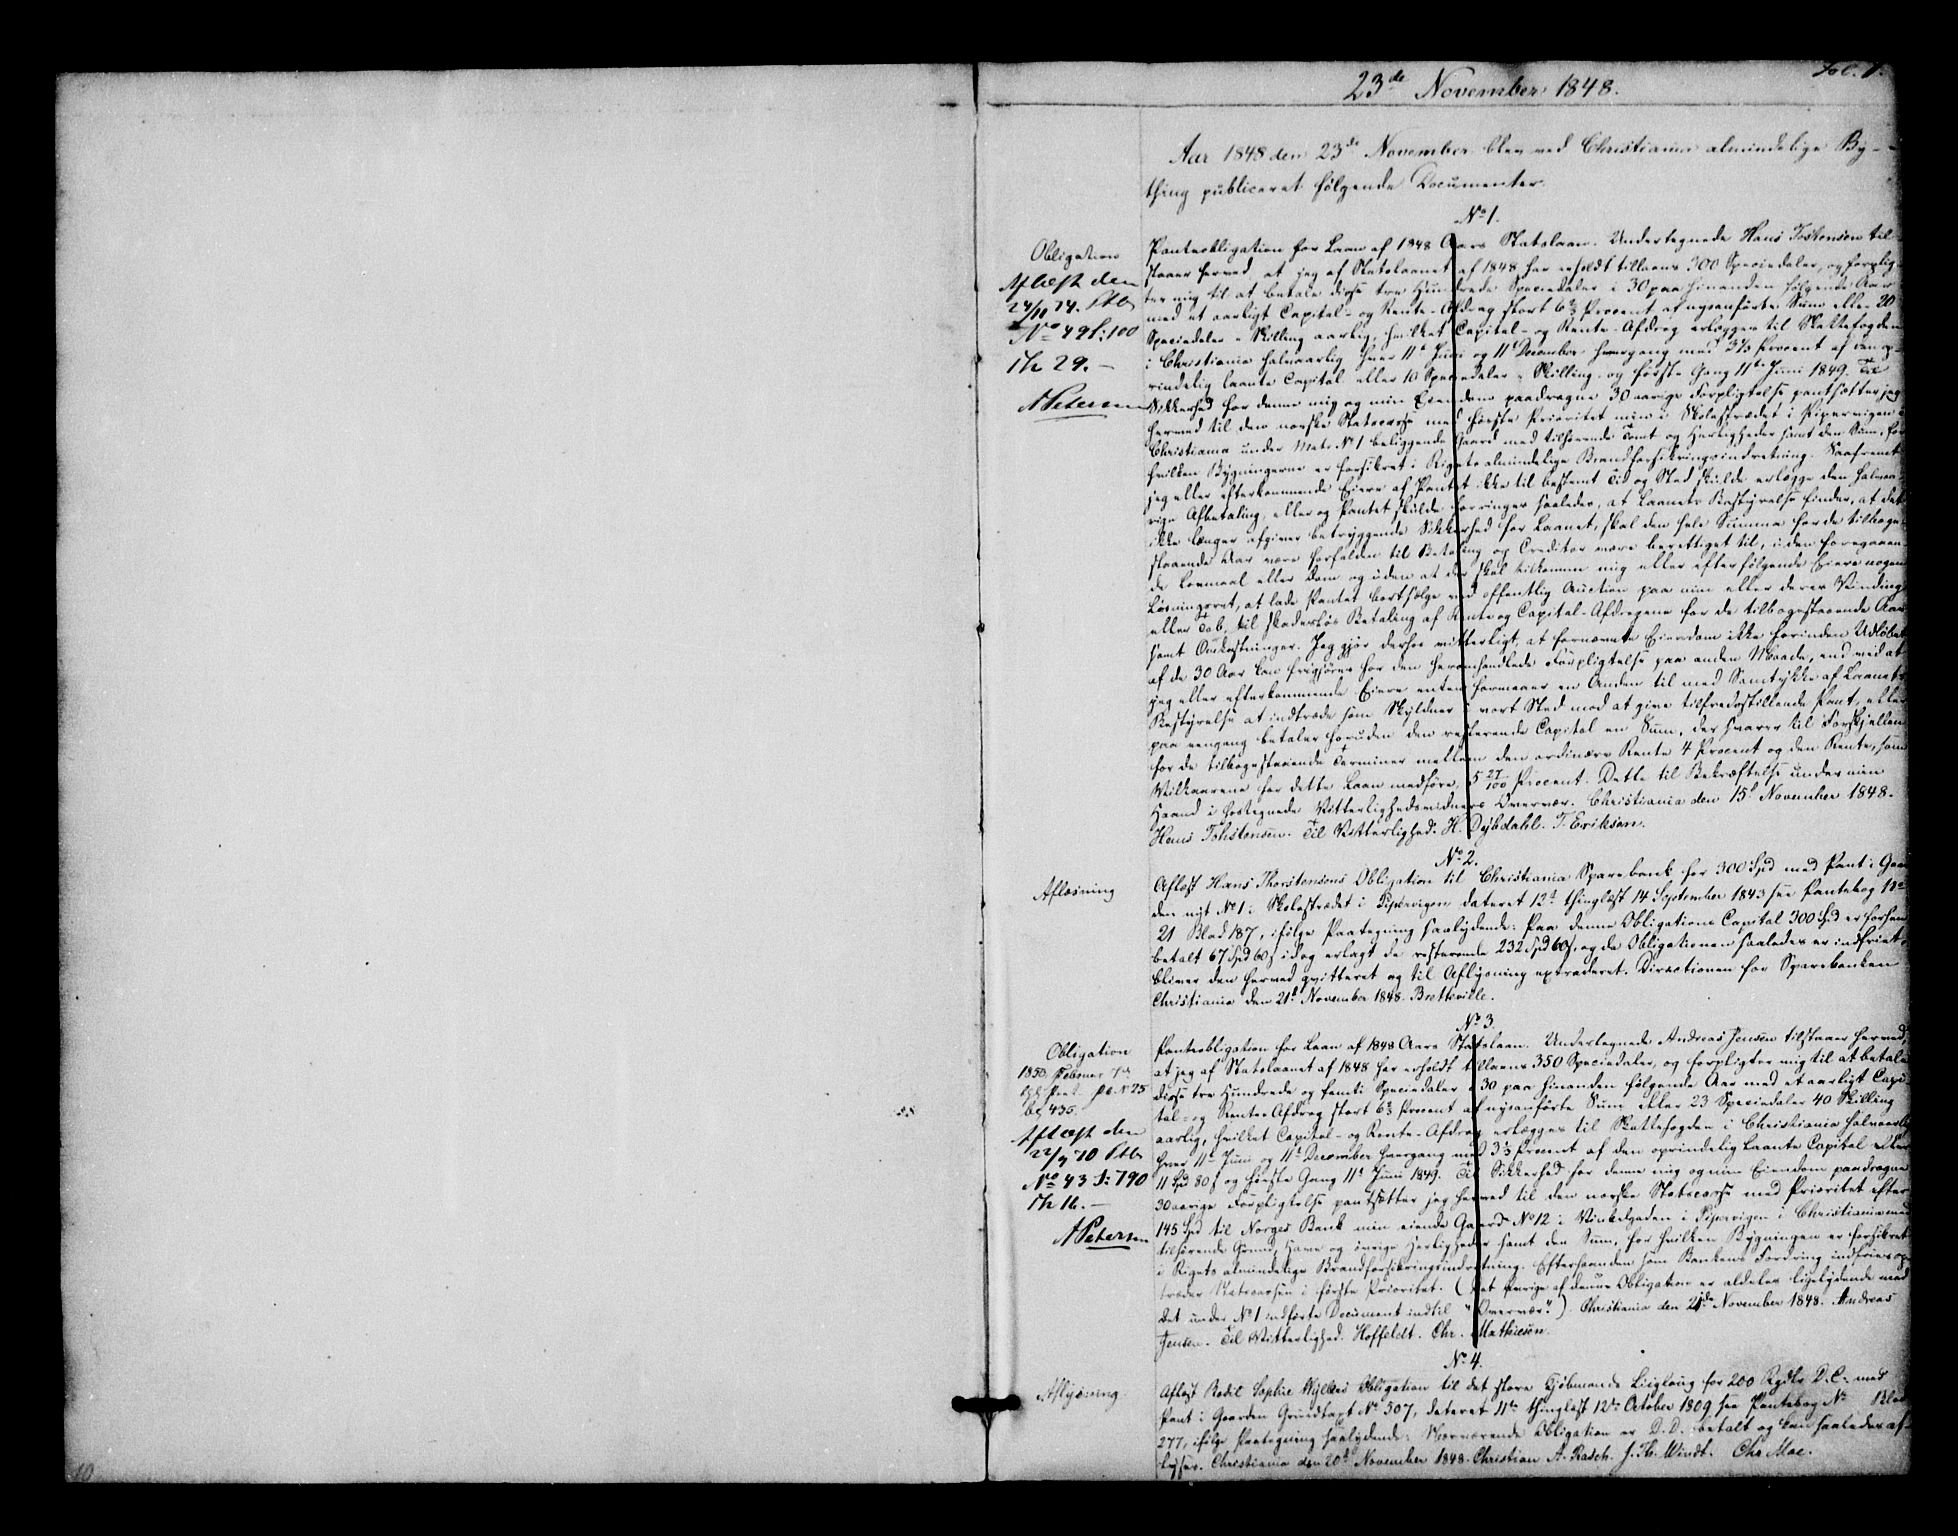 Fol. 1.
23de November 1848.
Aar 1848 den 23de November blev ved Christiania almindelige By-
thing publiceret følgende Documenter.
No 1.
Obligation
Aflæst den
24/11 74. Ptb
No 49 f. 100
Th 29. –
A Petersen
Panteobligation for Laan af 1848 Aars Statslaan. Undertegnede Hans Torstensen til-
staaer herved, at jeg af Statslaanet af 1848 har erholdt tillaans 300 Speciedaler, og forplig-
ter mig til at betale disse tre Hundrede Speciedaler i 30 paa hinanden følgende Aar
med et aarligt Capital- og Rente-Afdrag stort 6 2/3 Procent af nysanførte Sum eller 20
Speciedaler " Skilling aarlig, hvilket Capital- og Rente-Afdrag erlægges til Skattefogden
i Christiania halvaarlig hver 11te Juni og 11te December hvergang med 3 1/3 Procent af den op-
rindelig laante Capital eller 10 Speciedaler " Skilling og første Gang 11te Juni 1849. Til
Sikkerhed for denne mig og min Eiendom paadragne 30 aarige Forpligtelse pantsætter jeg
herved til den norske Statscasse med første Prioritet min i Skolestrædet i Pipervigen i
Christiania under Matr. No 1 beliggende Gaard med tilhørende Tomt og Herligheder samt den Sum, for
hvilken Bygningerne er forsikret i Rigets almindelige Brandforsikringsindretning. Saafremt
jeg eller efterkommende Eiere af Pantet ikke til bestemt Tid og Sted skulde erlægge den halvaa-
rige Afbetaling, eller og Pantet skulde forringes saaledes, at Laanets Bestyrelse finder, at det
ikke længer afgiver betryggende Sikkerhed for Laanet, skal den hele Summa for de tilbage-
staaende Aar være forfalden til Betaling og Creditor være berettiget til, uden foregaaen-
de Lovmaal eller Dom og uden at der skal tilkomme mig eller efterfølgende Eiere nogen
Løsningsret, at lade Pantet bortsælge ved offentlig Auction paa min eller deres Vinding
eller Tab, til skadesløs Betaling af Rente og Capital-Afdragene for de tilbagestaaende Aar
samt Omkostninger. Jeg gjør derhos vitterligt, at fornævnte Eiendom ikke forinden Udløbet
af de 30 Aar kan frigjøres for den heromhandlede Forpligtelse paa anden Maade, end ved at
jeg eller efterkommende Eiere enten formaaer en Anden til med Samtykke af Laanets
Bestyrelse at indtræde som Skyldner i vort Sted mod at give tilfredsstillende Pant, eller
paa eengang betaler foruden den resterende Capital en Sum, der svarer til Forskjellen
for de tilbagestaaende Terminer mellem den ordinære Rente 4 Procent og den Rente, som
Vilkaarene for dette Laan medføre, 5 27/100 Procent. Dette til Bekræftelse under min
Haand i hostegnede Vitterlighedsvidners Overvær. Christiania den 15d November 1848.
Hans Tohstensen. Til Vitterlighed. H. Dybdahl. T. Eriksen.
No 2.
Aflæsning
Aflæst Hans Thorstensens Obligation til Christiania Sparebank for 300 Spd med Pant i Gaar-
den nyt No 1 i Skolestrædet i Pipervigen dateret 12te thinglæst 14 September 1843 see Pantebog No
21 Blad 187, ifølge Paategning saalydende: Paa denne Obligations Capital 300 Spd er forhen
betalt 67 Spd 60 s idag erlagt de resterende 232 Spd 60 s, og da Obligationen saaledes er indfriet,
bliver den herved qvitteret og til Aflysning extraderet. Directionen for Sparebanken
Christiania den 21d November 1848. Bretteville.
No 3.
Obligation
1850, Februar 7de
No 25
bl 435.
Aflæst den
22/7 70 Ptb
No 43 f: 790
Th 16. –
A Petersen
Panteobligation for Laan af 1848 Aars Statslaan. Undertegnede Andreas Jensen tilstaaer herved,
at jeg af Statslaanet af 1848 har erholdt tillaans 350 Speciedaler, og forpligter mig til at betale
disse tre Hundrede og femti Speciedaler i 30 paa hinanden følgende Aar med et aarligt Capi-
tal- og Rente-Afdrag stort 6 2/3 Procent af nysanførte Sum eller 23 Speciedaler 40 Skilling
aarlig, hvilket Capital- og Rente-Afdrag erlægges til Skattefogden i Christiania halvaarlig
hver 11te Juni og 11te December hvergang med 3 1/3 Procent af den oprindelig laante Capital eller
11 Spd 80 s og første Gang 11te Juni 1849. Til Sikkerhed for denne mig og min Eiendom paadragne
30 aarige Forpligtelse pantsætter jeg herved til den norske Statscasse med Prioritet efter
145 Spd til Norges Bank min eiende Gaard No 12 i Vinkelgaden i Pipervigen i Christiania med
tilhørende Grund, Have og øvrige Herligheder samt den Sum, for hvilken Bygningen er forsikret
i Rigets almindelige Brandforsikringsindretning. Efterhaanden som Bankens Fordring indfries op-
træder Statscassen i første Prioritet. (Det øvrige af denne Obligation er aldeles ligelydende med
det under No 1 indførte Document indtil "Overvær".) Christiania den 21de November 1848. Andreas
Jensen. Til Vitterlighed. Hoffeldt. Chr. Mathiesen.
No 4.
Aflysning
Aflæst Bodil Sophie Hyllers Obligation til det store Kjøbmands Liiglaug for 200 Rgdlr D. C. med
Pant i Gaarden Grundtaxt No 507, dateret 11te thinglæst 12te October 1809 see Pantebog No Blad
277, ifølge Paategning saalydende: Nærværende Obligation er D. D. betalt og kan saaledes af-
lyses. Christiania den 20d November 1848. Christian A. Rasch. J. Th. Windt. Chr Moe.
10